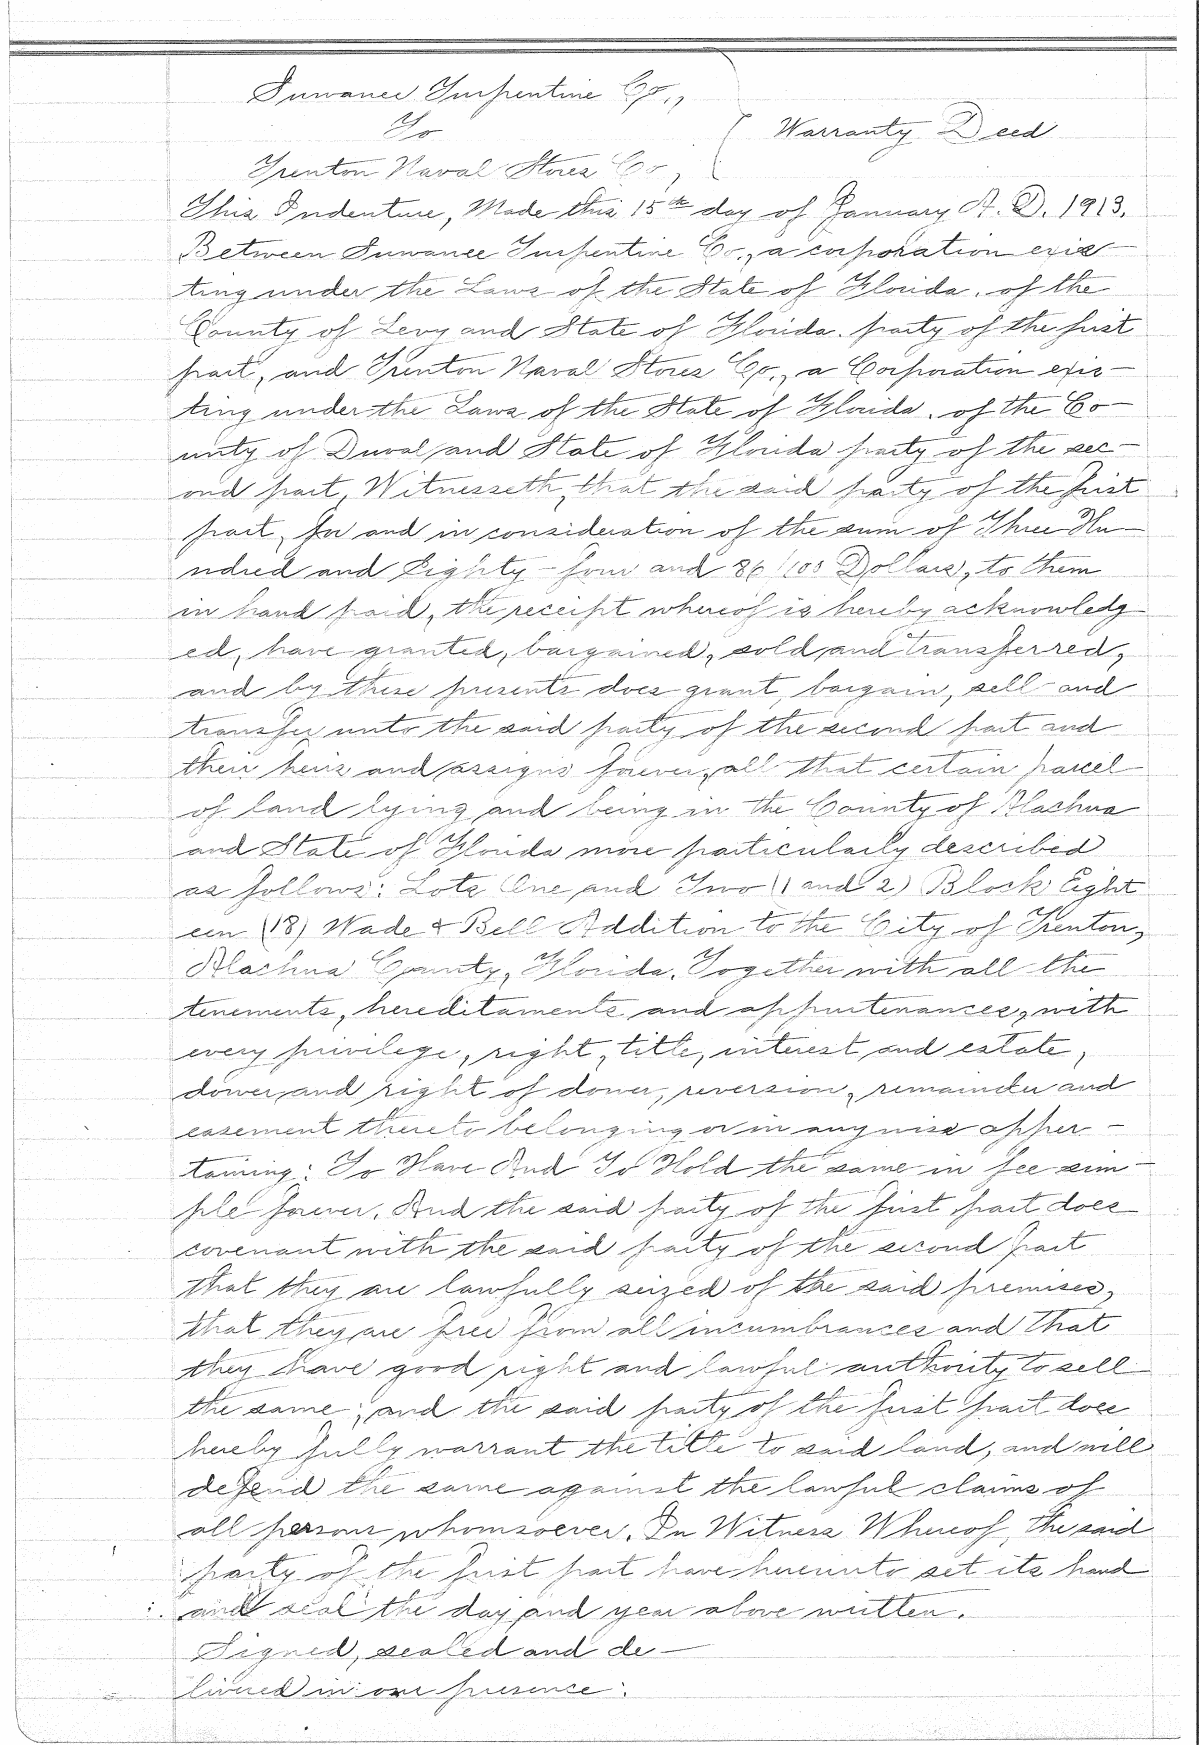 Suwanee Turpentine Co.,
To
Warranty Deed
Trenton Naval Stores Co.,
This Indenture, Made this 15th day of January A. D. 1913.
Between Suwanee Turpentine Co., a corporation exis-
ting under the Laws of the State of Florida, of the
County of Levy and State of Florida. party of the first
part, and Trenton Naval Stores Co., a Corporation exis-
ting under the Laws of the State of Florida, of the Co-
unty of Duval and State of Florida party of the sec-
ond part, Witnesseth, that the said party of the first
part, for and in consideration of the sum of Three Hu-
ndred and Eighty-four and 86/100 Dollars, to them
in hand paid, the receipt whereof is hereby acknowledg-
ed, have granted, bargained, sold and transferred,
and by these presents does grant, bargain, sell and
transfer unto the said party of the second part and
their heirs and assigns forever, all that certain parcel
of land lying and being in the County of Alachua
and State of Florida more particularly described
as follows: Lots One and Two (1 and 2) Block Eight
een (18) Wade & Bell Addition to the City of Trenton,
Alachua County, Florida. Together with all the
tenements, hereditaments and appurtenances, with
every privilege, right, title, interest and estate,
dower and right of dower, reversion, remainder and
easement thereto belonging or in anywise apper-
taining: To Have And To Hold the same in fee sim-
ple forever. And the said party of the first part does
covenant with the said party of the second part
that they are lawfully seized of the said premises,
that they are free from all incumbrances and that
they have good right and lawful authority to sell
the same; and the said party of the first part does
hereby fully warrant the title to said land, and will
defend the same against the lawful claims of
all persons whomsoever. In Witness Whereof, the said
party of the first part have hereunto set its hand
and seal the day and year above written.
Signed, sealed and de-
livered in our presence: